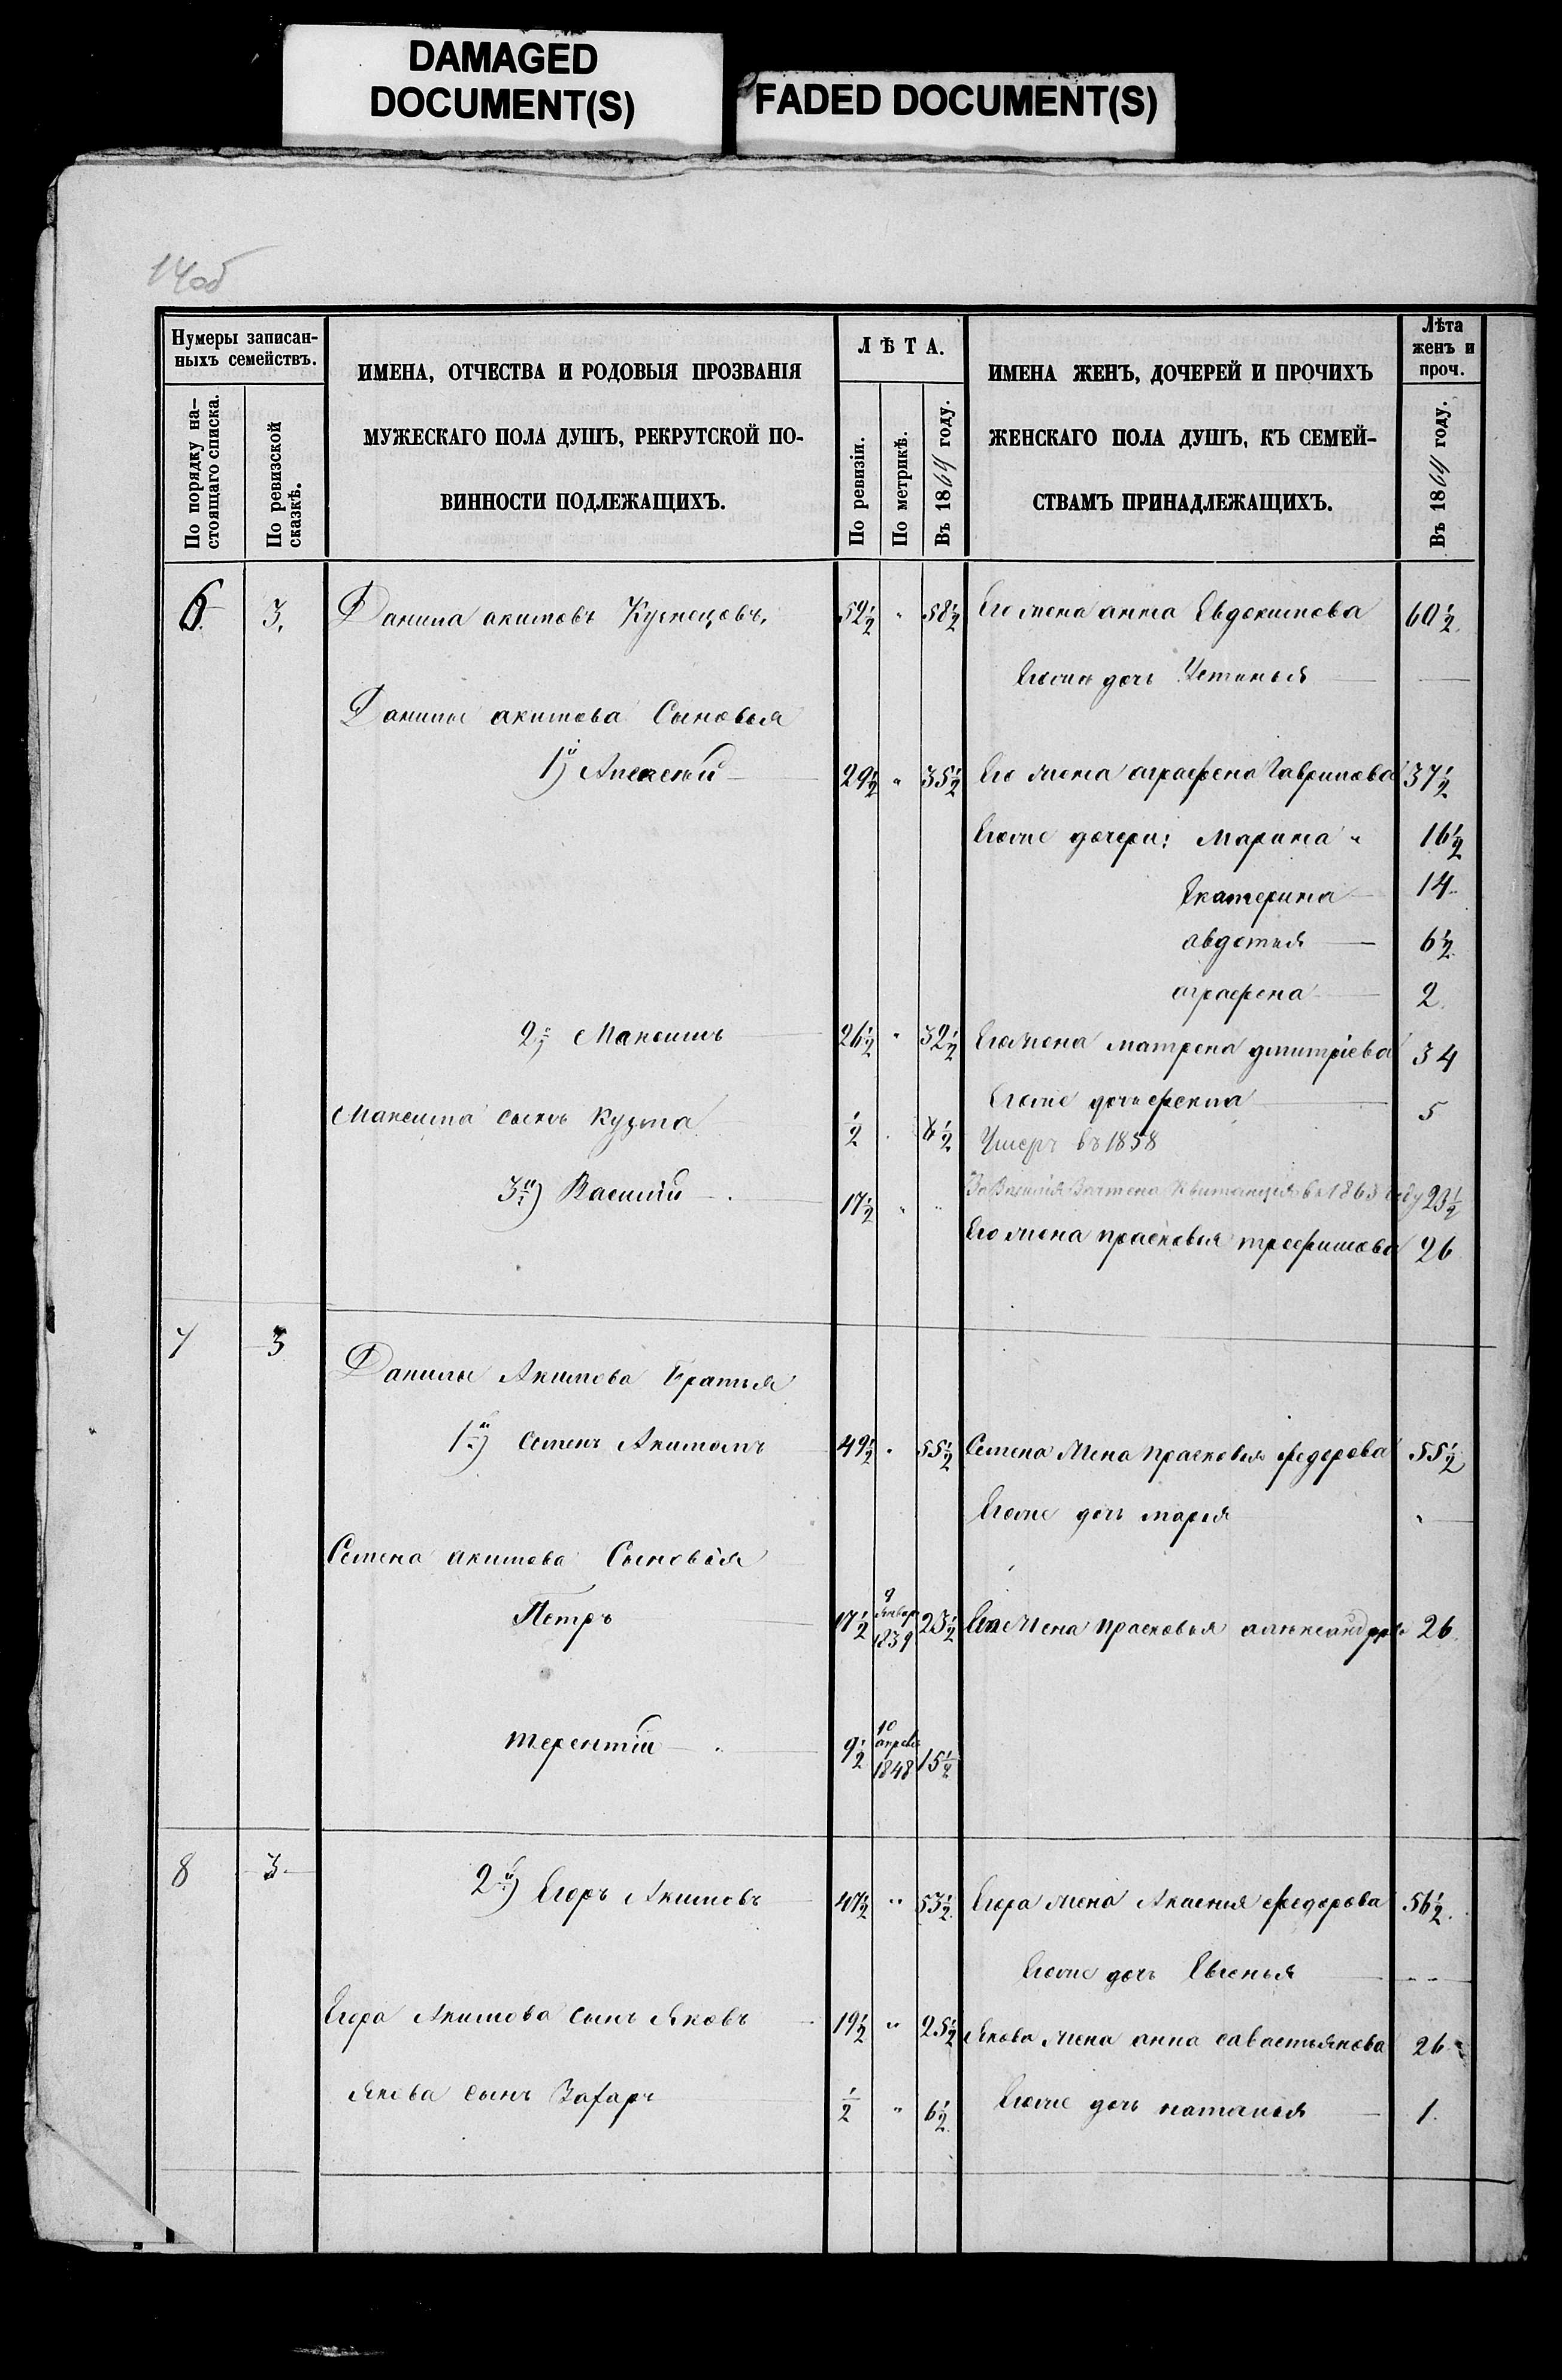 DAMAGED
DOCUMENT(S)
FADED DOCUMENT(S)
14об
Нумеры записан-
ныхъ семействъ.
По порядку на-
стоящаго списка.
По ревизской
сказкѣ.
ИМЕНА, ОТЧЕСТВА И РОДОВЫЯ ПРОЗВАНІЯ
МУЖЕСКАГО ПОЛА ДУШЪ, РЕКРУТСКОЙ ПО-
ВИННОСТИ ПОДЛЕЖАЩИХЪ.
ЛѢТА.
По ревизіи.
По метрикѣ.
Въ 1864 году.
ИМЕНА ЖЕНЪ, ДОЧЕРЕЙ И ПРОЧИХЪ
ЖЕНСКАГО ПОЛА ДУШЪ, КЪ СЕМЕЙ-
СТВАМЪ ПРИНАДЛЕЖАЩИХЪ.
Лѣта
женъ и
проч.
Въ 1864 году.
6. 3. Данила акимовъ Кузнецовъ. 52½ " 58½ Его жена анна Евдокимова 60½.
Егоже дочь Устинья —
Данилы акимова Сыновья
1й) Алексей 29½ " 35½ Его жена аграфена Гаврилова 37½
Егоже дочери: Марина " 16½
Екатерина 14
авдотья 6½
аграфена 2.
2й) Максимъ 26½ " 32½ Его жена матрена дмитріева 34
Егоже дочь фекла 5
Максима сынъ Кузма ½ " 6½ Умеръ въ 1858
3й) Василій 17½ " " За Василія Зачтена Квитанция въ 1863 году 23½
Его жена прасковья трофимова 26
7 3 Данилы Акимова Братья
1й) Семенъ Акимовъ 49½ " 55½ Семена жена прасковья федорова 55½
Егоже дочь марья "
Семена акимова Сыновья
Петръ 17½ 9 января 1839 23½ Его жена прасковья александрова 26.
терентій 9½ 10 апреля 1848 15½
8 3 2й) Егоръ Акимовъ 47½ " 53½ Егора жена Аксинья федорова 56½.
Егоже дочь Евгенья —
Егора Акимова сынъ Яковъ 19½ " 25½ Якова жена анна савастьянова 26
Якова сынъ Захаръ ½ " 6½ Егоже дочь наталья 1.